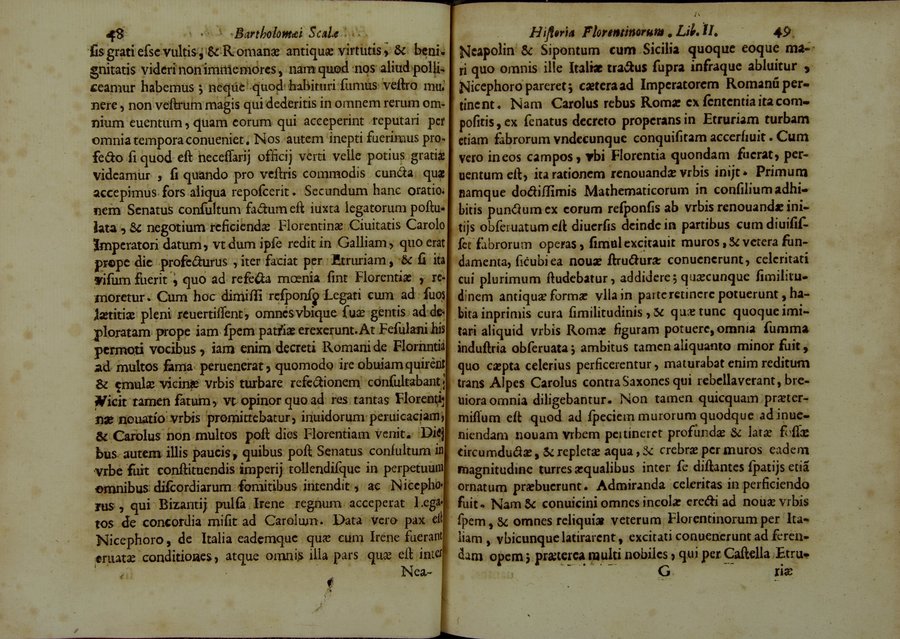 48 Bartholomæi Scalæ
sis grati esse vultis, & Romanæ antiquæ virtutis, & beni-
gnitatis videri non immemores, nam quod nos aliud polli-
ceamur habemus; neque quod habituri sumus vestro mu-
nere, non vestrum magis qui dederitis in omnem rerum om-
nium euentum, quam eorum qui acceperint reputari per
omnia tempora conueniet. Nos autem inepti fuerimus pro-
fecto si quod est necessarij officij verti velle potius gratiæ
videamur, si quando pro vestris commodis cuncta quæ
accepimus fors aliqua reposcerit. Secundum hanc oratio-
nem Senatus consultum factum est iuxta legatorum postu-
lata, & negotium reficiendæ Florentinæ Ciuitatis Carolo
Imperatori datum, vt dum ipse redit in Galliam, quo erat
prope die profecturus, iter faciat per Etruriam, & si ita
visum fuerit, quo ad refecta mœnia sint Florentiæ, re-
moretur. Cum hoc dimissi responso Legati cum ad suos
lætitiæ pleni reuertissent, omnes vbique suæ gentis ad de-
ploratam prope iam spem patriæ erexerunt. At Fesulani his
permoti vocibus, iam enim decreti Romani de Florintia
ad multos fama peruenerat, quomodo ire obuiam quirent
& emulæ vicinæ vrbis turbare refectionem consultabant;
Vicit tamen fatum, vt opinor quo ad res tantas Florenti-
næ nouatio vrbis promittebatur, inuidorum peruicaciam;
& Carolus non multos post dies Florentiam venit. Die-
bus autem illis paucis, quibus post Senatus consultum in
vrbe fuit constituendis imperij tollendisque in perpetuum
omnibus discordiarum fomitibus intendit, ac Nicepho-
rus, qui Bizantij pulsa Irene regnum acceperat Lega-
tos de concordia misit ad Carolum. Data vero pax est
Nicephoro, de Italia eademque quæ cum Irene fuerant
seruatæ conditiones, atque omnis illa pars quæ est inter
Nea-
Historia Florentinorum. Lib. II. 49
Neapolin & Sipontum cum Sicilia quoque eoque ma-
ri quo omnis ille Italiæ tractus supra infraque abluitur,
Nicephoro pareret; cætera ad Imperatorem Romanũ per-
tinent. Nam Carolus rebus Romæ ex sententia ita com-
positis, ex senatus decreto properans in Etruriam turbam
etiam fabrorum vndecunque conquisitam accersiuit. Cum
vero in eos campos, vbi Florentia quondam fuerat, per-
uentum est, ita rationem renouandæ vrbis inijt. Primum
namque doctissimis Mathematicorum in consilium adhi-
bitis punctum ex eorum responsis ab vrbis renouandæ ini-
tijs obseruatum est diuersis deinde in partibus cum diuisis-
set fabrorum operas, simul excitauit muros, & vetera fun-
damenta, sicubi ea nouæ structuræ conuenerunt, celeritati
cui plurimum studebatur, addidere; quæcunque similitu-
dinem antiquæ formæ vlla in parte retinere potuerunt, ha-
bita inprimis cura similitudinis, & quæ tunc quoque imi-
tari aliquid vrbis Romæ figuram potuere, omnia summa
industria obseruata; ambitus tamen aliquanto minor fuit,
quo cæpta celerius perficerentur, maturabat enim reditum
trans Alpes Carolus contra Saxones qui rebellaverant, bre-
uiora omnia diligebantur. Non tamen quicquam præter-
missum est quod ad speciem murorum quodque ad inue-
niendam nouam vrbem pertineret profundæ & latæ fossæ
circumductæ, & repletæ aqua, & crebræ per muros eadem
magnitudine turres æqualibus inter se distantes spatijs etiã
ornatum præbuerunt. Admiranda celeritas in perficiendo
fuit. Nam & conuicini omnes incolæ erecti ad nouæ vrbis
spem, & omnes reliquiæ veterum Florentinorum per Ita-
liam, vbicunque latirarent, excitati conuenerunt ad feren-
dam opem; præterea multi nobiles, qui per Castella Etru-
G riæ